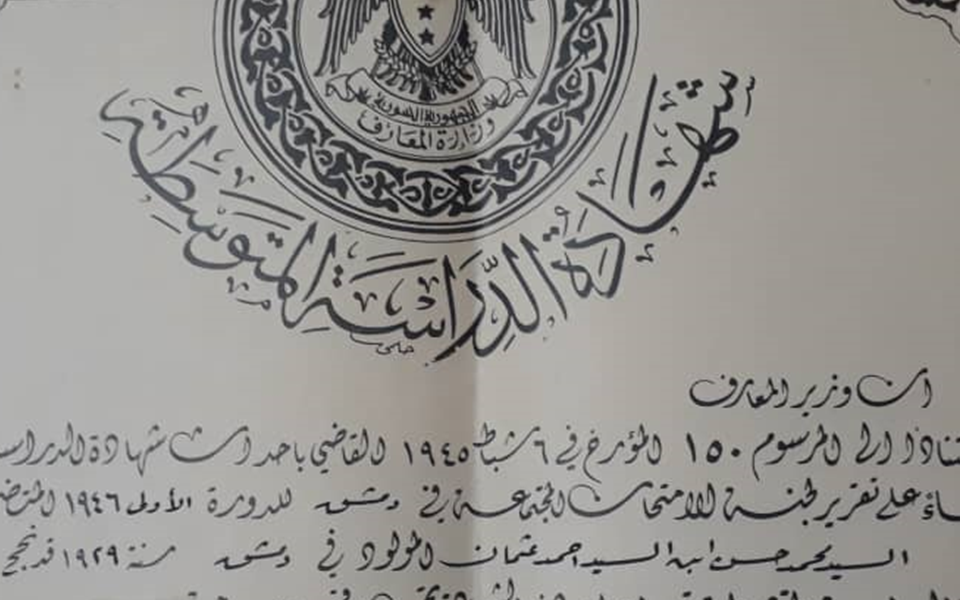 الجمهورية السورية
وزارة المعارف
شهادة الدراسة المتوسطة
حلمي
ان وزير المعارف
تنادا الى المرسوم ١٥٠ المؤرخ في ٦ شباط ١٩٤٥ القاضي باحداث شهادة الدراسـ
ـاءً على تقرير لجنة الامتحان المجتمعة في دمشق للدورة الأولى ١٩٤٦ المتضـ
السيد محمد حسن ابن السيد احمد عثمان المولود في دمشق سنة ١٩٢٩ قد نجح